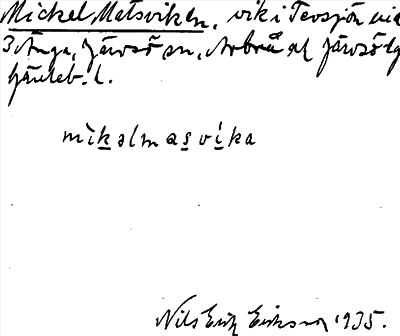 Mickel Matsviken, vik i Tevsjön vid
3 Änga, Järvsö sn, Arbrå ol Järvsö tg
Gävleb. l.
mìkəlmasvíka
Nils Erik Eriksson 1935.